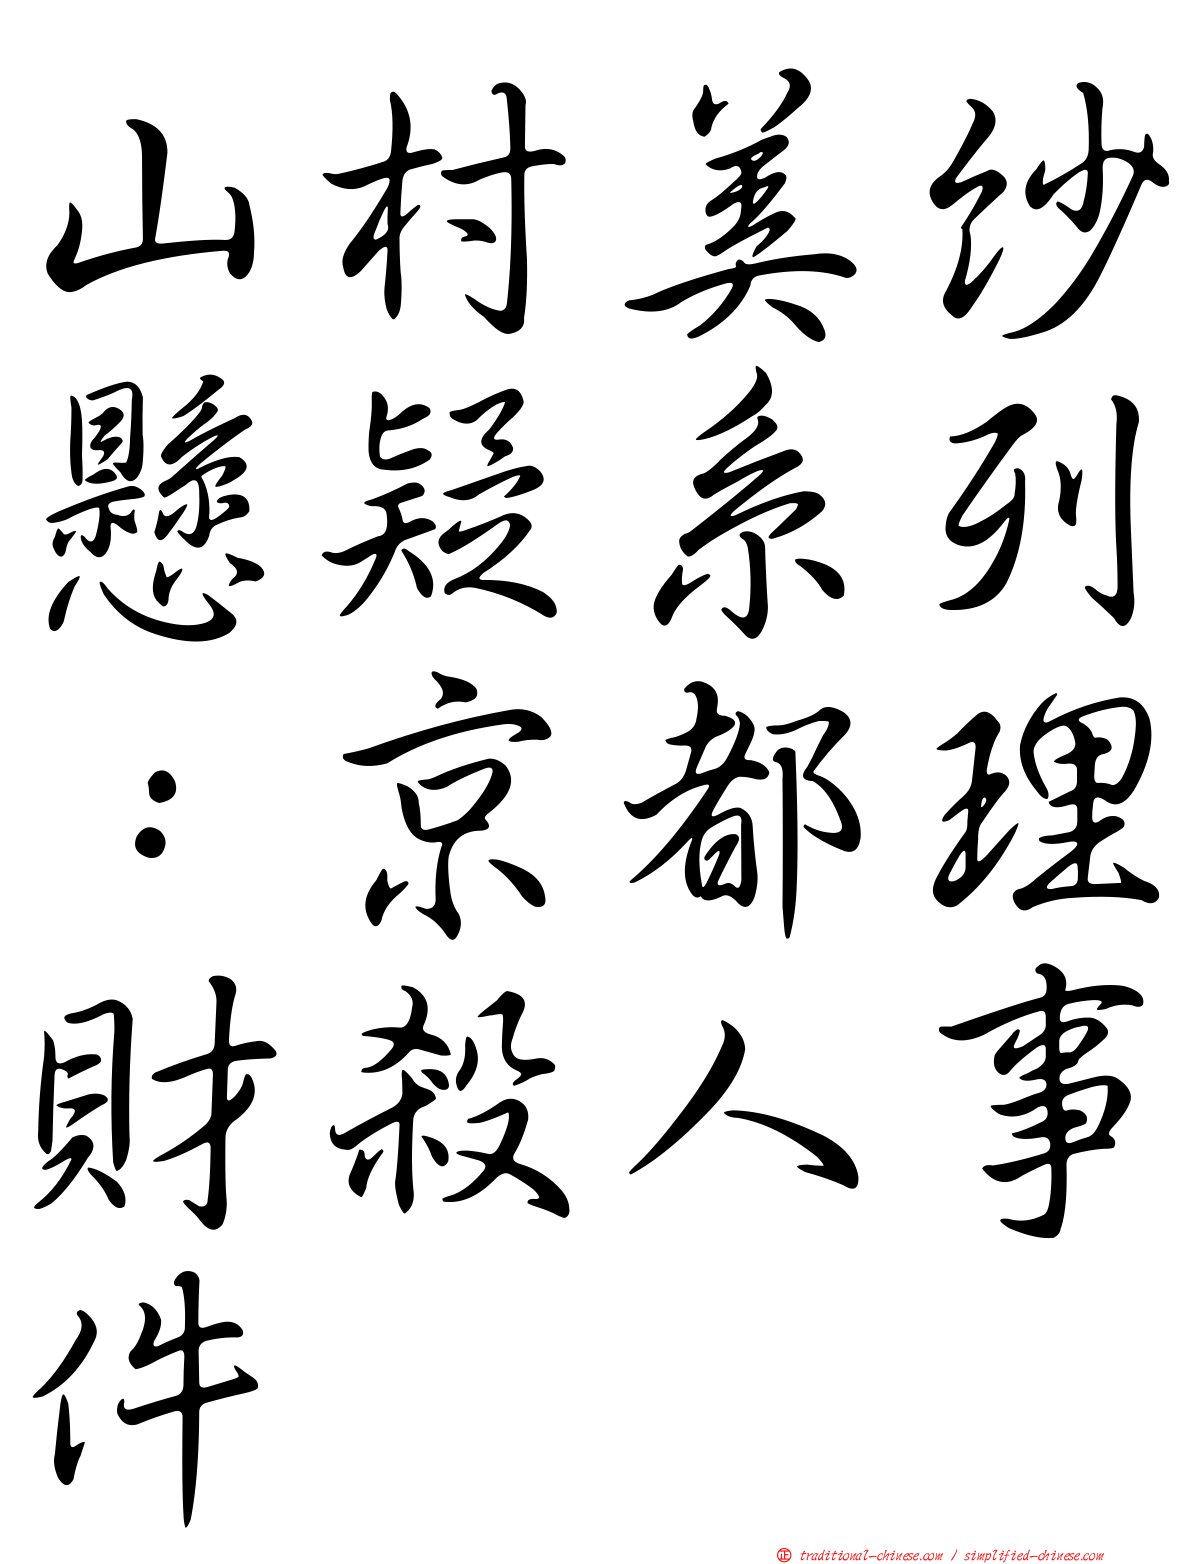 山村美紗
懸疑系列
：京都理
財殺人事
件
正 traditional-chinese.com / simplified-chinese.com